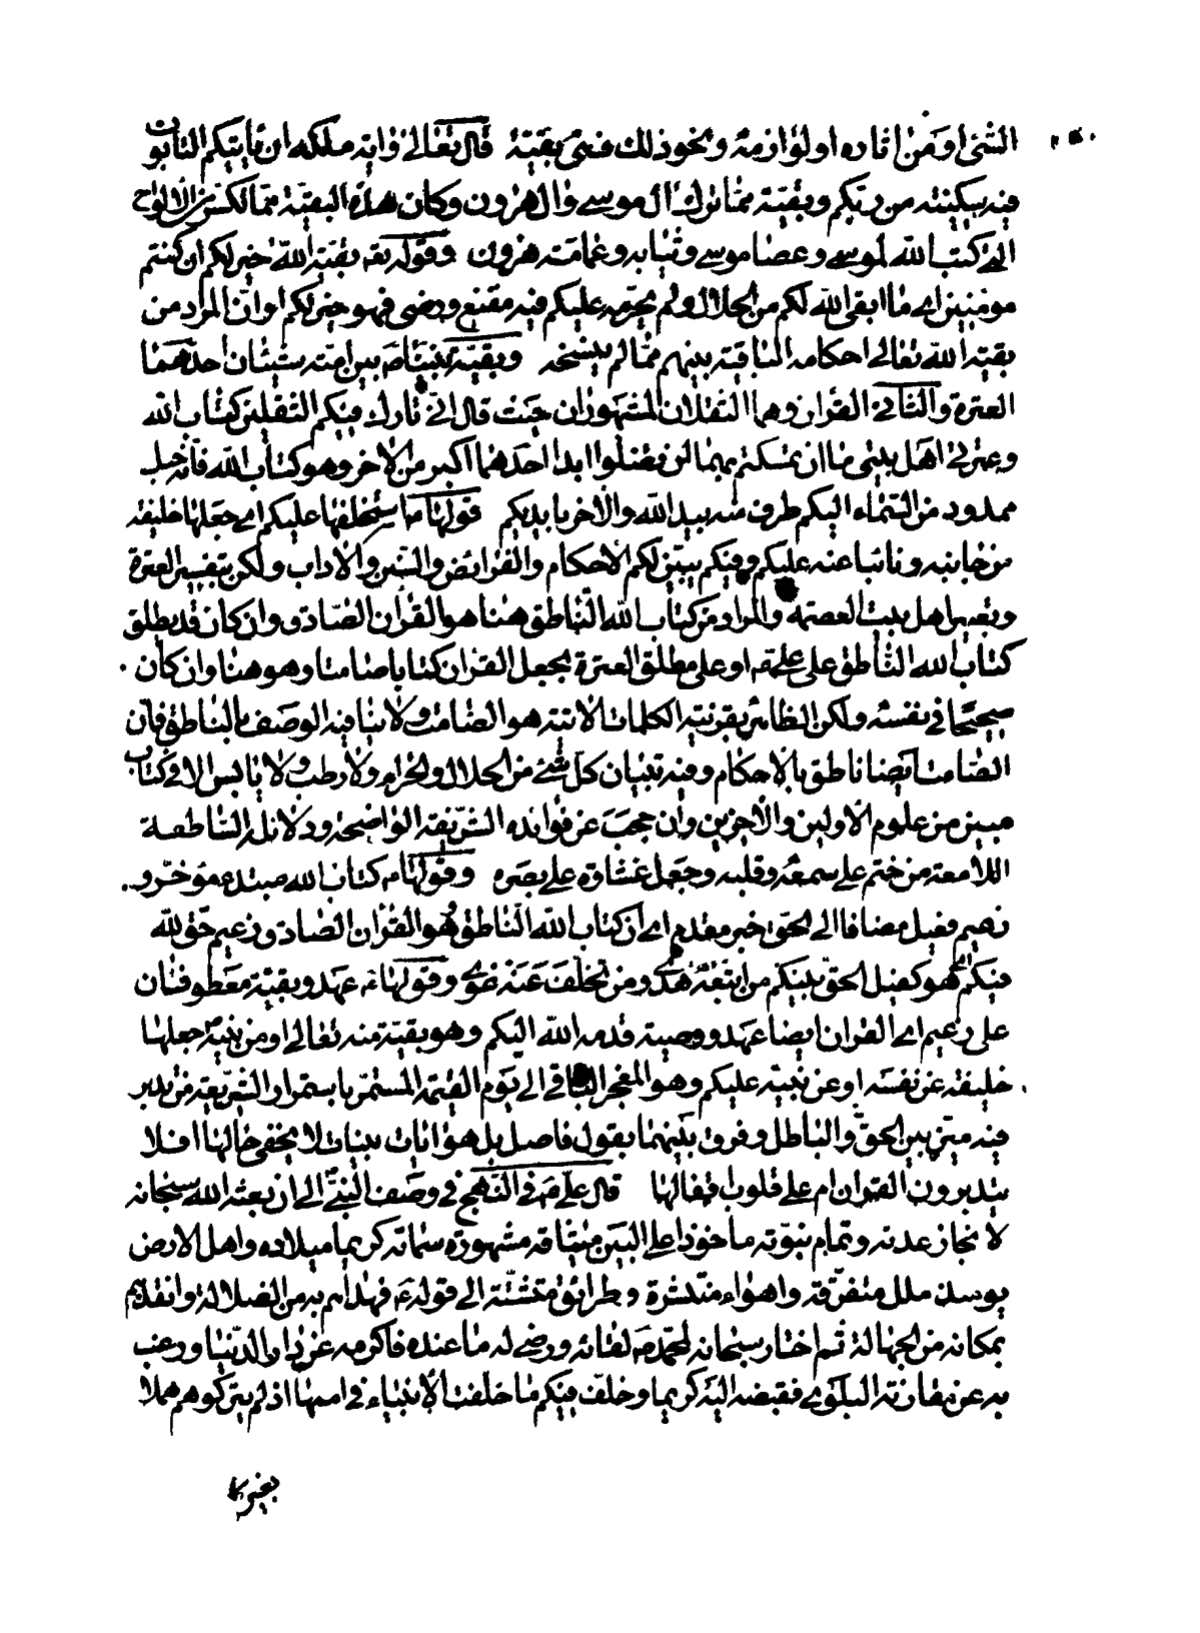 الشئ او من اثاره او لوازمه ونحو ذلك فهى بقيته قال تعالى وايه ملكه ان ياتيكم التابوت
فيه سكينته من ربكم وبقية مما ترك ال موسى وال هرون وكان هذه البقية مما تكسر من الالواح
التى كتب الله لموسى وعصا موسى وثيابه وعمامته هرون وقوله تع بقية الله خير لكم ان كنتم
مومنين اى ما ابقى الله لكم من الحلال ولم يحرمه عليكم فيه مقنع ورضى فهو خير لكم او ان المراد من
بقية الله تعالى احكامه الباقية بينهم مما لم ينسخه وبقية نبينا ص بين امته شيئان احدهما
العترة والثانى القران وهما الثقلان المشهوران حيث قال انى تارك فيكم الثقلين كتاب الله
وعترتى اهل بيتى ما ان تمسكتم بهما لن تضلوا ابدا احدهما اكبر من الاخر وهو كتاب الله فانه حبل
ممدود من السماء اليكم طرف منه بيد الله والاخر بايديكم قولها ع استخلفها عليكم اى جعلها خليفة
من جانبه ونائبا عنه عليكم وفيكم يبين لكم الاحكام والفرائض والسنن والاداب ولكن بتفسير العترة
وتفسير اهل بيت العصمة والمراد من كتاب الله الناطق هنا هو القران الصادق وان كان قد يطلق
كتاب الله الناطق على على ع او على مطلق العترة بجعل القران كتابا صامتا وهو هنا وان كان
صحيحا فى نفسه ولكن الظاهر بقرينة الكلمات الاتية هو الصامت ولا ينافيه الوصف بالناطق فان
الصامت ايضا ناطق بالاحكام وفيه تبيان كل شئ من الحلال والحرام ولا رطب ولا يابس الا فى كتاب
مبين من علوم الاولين والاخرين وان حجب عن فوائده الشريفة الواضحة ودلائله الساطعة
اللامعة من ختم على سمعه وقلبه وجعل غشاوة على بصره وقولها ع كتاب الله مبتدء مؤخر و
زعيم فعيل مضافا الى الحق خبر مقدم اى ان كتاب الله الناطق هو القران الصادق زعيم حق لله
فيكم اى هو كفيل الحق بينكم من اتبعه هدى ومن تخلف عنه غوى وقولها ع عهد وبقية معطوفان
على زعيم اى القران ايضا عهد ووصية قدمه الله اليكم وهو بقية منه تعالى او من نبيه ص جعلها
خليفة عن نفسه او عن نبيه عليكم وهو المعجز الباقى الى يوم القيمة المستمر باستمرار الشريعة من تدبر
فيه ميز بين الحق والباطل وفرق بينهما بقول فاصل بل هو ايات بينات لا يخفى حالها افلا
يتدبرون القران ام على قلوب اقفالها قال على ع فى النهج فى وصف النبى ص الى ان بعثه الله سبحانه
لانجاز عدته وتمام نبوته ماخوذا على النبيين ميثاقه مشهورة سماته كريما ميلاده واهل الارض
يومئذ ملل متفرقة واهواء منتشرة وطرائق متشتتة الى قوله ع فهداهم به من الضلالة وانقذهم
بمكانه من الجهالة ثم اختار سبحانه لمحمد ص لقائه ورضى له ما عنده فاكرمه عن دار الدنيا ورغب
به عن مقارنة البلوى فقبضه اليه كريما وخلف فيكم ما خلفت الانبياء فى اممها اذ لم يتركوهم هملا
بغير